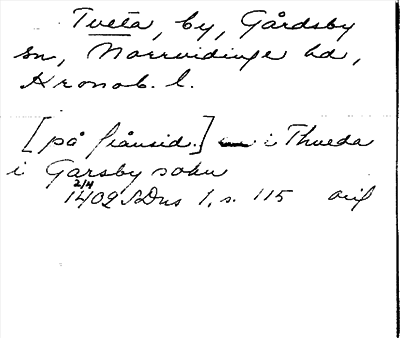 Tveta, by, Gårdsby
sn, Norrvidinge hd,
Kronob. l.
[på frånsid.] i Thueda
i Garsby sokn
2/4
1402 SDns 1, s. 115 orig